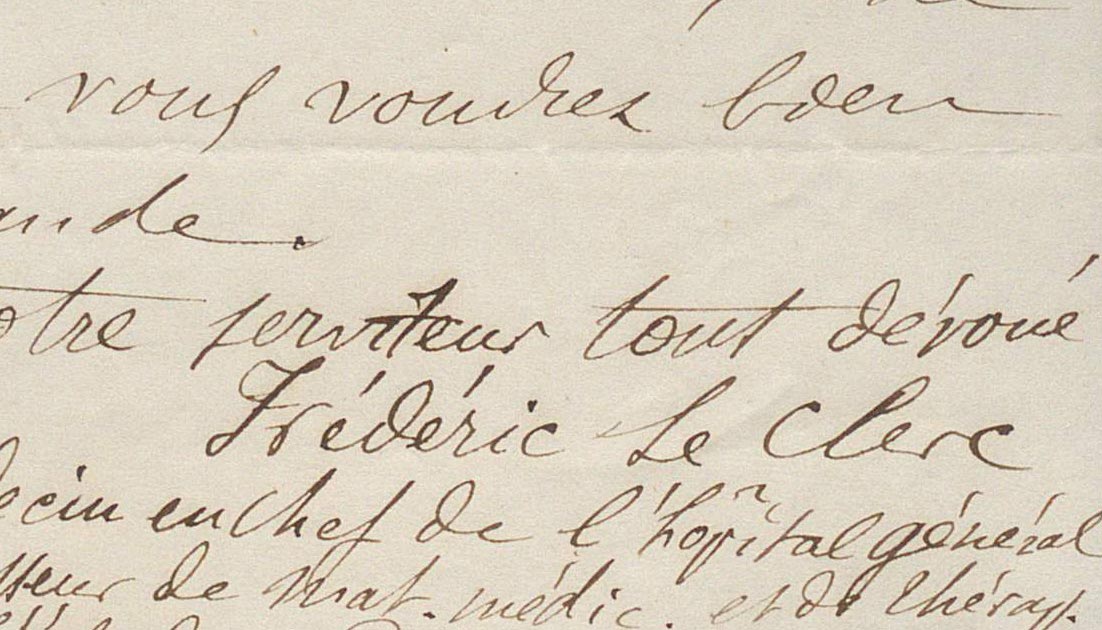 vous voudrez bien
ande.
otre serviteur tout dévoué
Frédéric Le Clerc
decin en chef de l'hôpital général
sseur de mat. médic. et de thérap.